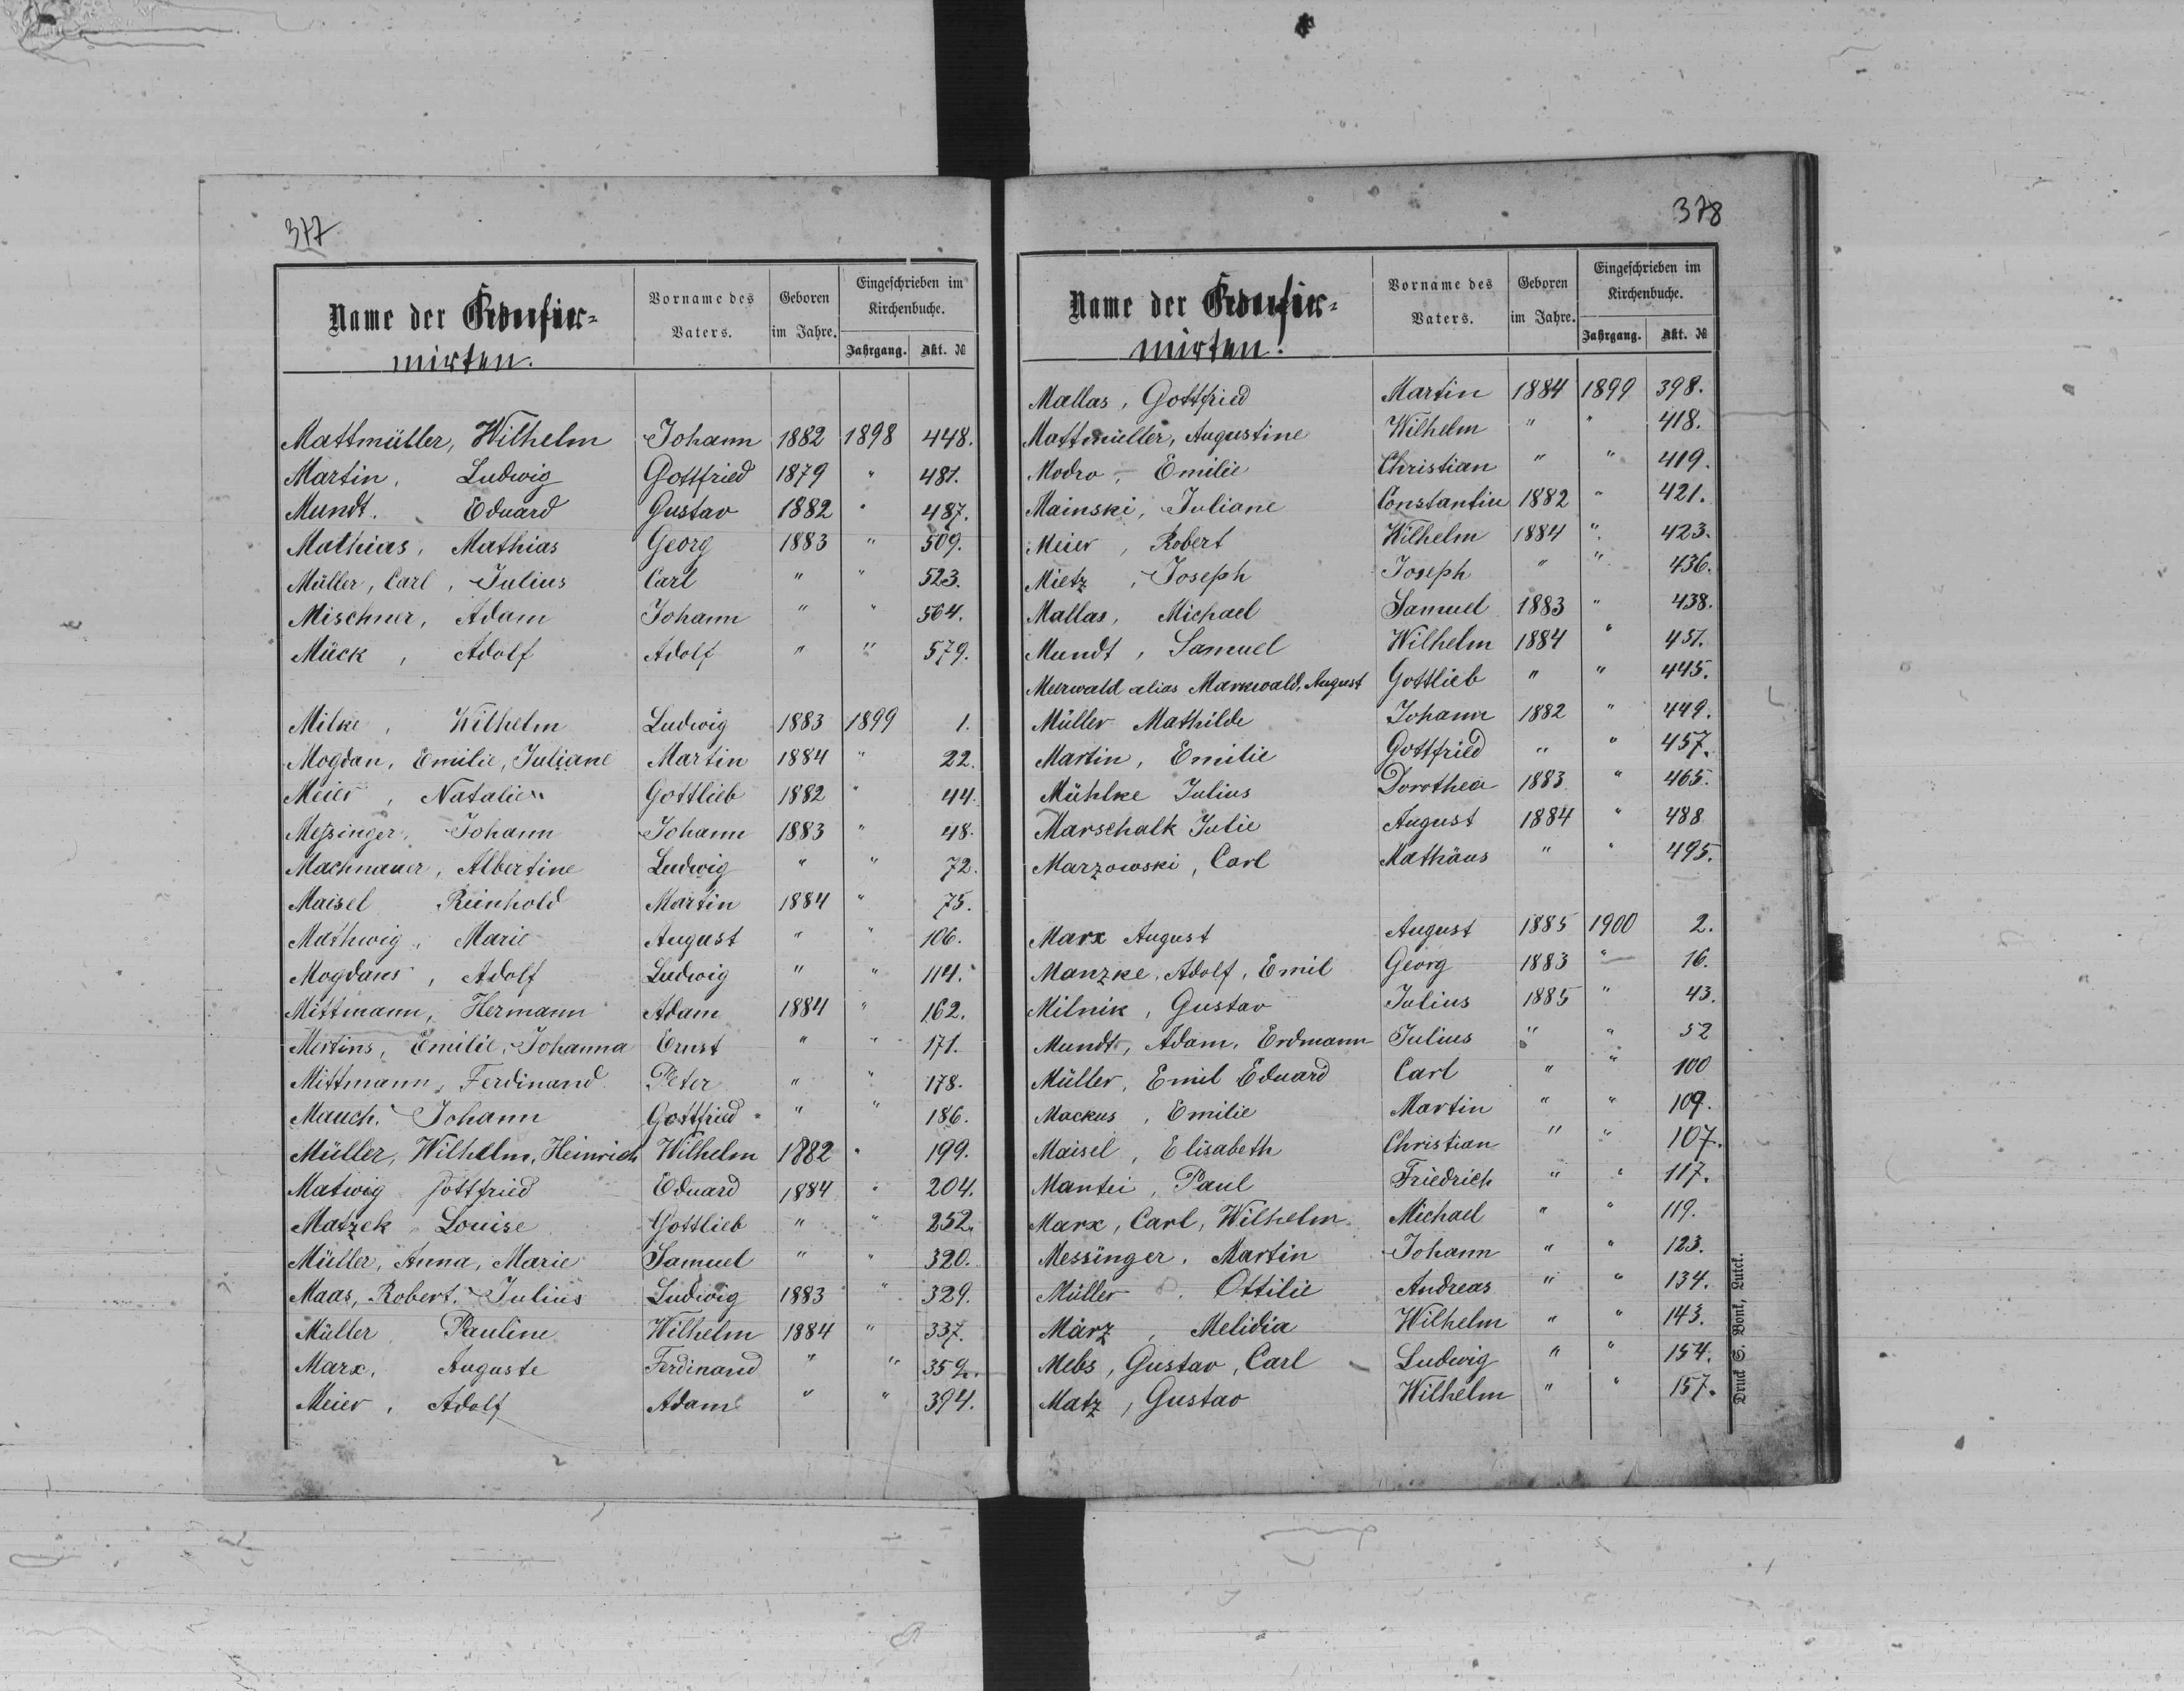 377
Name der Confir-
mirten.
Vorname des
Vaters.
Geboren
im Jahre.
Eingeschrieben im
Kirchenbuche.
Jahrgang. Akt. №
Mattmüller, Wilhelm Johann 1882 1898 448.
Martin, Ludwig Gottfried 1879 " 481.
Mundt. Eduard Gustav 1882 " 487.
Mathias, Mathias Georg 1883 " 509.
Müller, Carl, Julius Carl " " 523.
Mischner, Adam Johann " " 564.
Mück, Adolf Adolf " " 579.
Milke, Wilhelm Ludwig 1883 1899 1.
Mogdan, Emilie, Juliane Martin 1884 " 22.
Meier, Natalie Gottlieb 1882 " 44.
Messinger, Johann Johann 1883 " 48.
Machnauer, Albertine Ludwig " " 72.
Maisel Reinhold Martin 1884 " 75.
Mathwig, Marie August " " 106.
Mogdans, Adolf Ludwig " " 114.
Mittmann, Hermann Adam 1884 " 162.
Mertins, Emilie, Johanna Ernst " " 171.
Mittmann, Ferdinand Peter " " 178.
Mauch. Johann Gottfried " " 186.
Müller, Wilhelm, Heinrich Wilhelm 1882 " 199.
Matwig Gottfried Eduard 1884 " 204.
Matzek Louise Gottlieb " " 252.
Müller, Anna, Marie Samuel " " 320.
Maas, Robert, Julius Ludwig 1883 " 329.
Müller Pauline Wilhelm 1884 " 337.
Marx, Auguste Ferdinand " "
Meier, Adolf Adam " " 394.
378
Name der Confir-
mirten.
Vorname des
Vaters.
Geboren
im Jahre.
Eingeschrieben im
Kirchenbuche.
Jahrgang. Akt. №
Mallas, Gottfried Martin 1884 1899 398.
Mattmüller, Augustine Wilhelm " " 418.
Modro, Emilie Christian " " 419.
Mainski, Juliane Constantin 1882 " 421.
Meier, Robert Wilhelm 1884 " 423.
Mietz, Joseph Joseph " " 436.
Mallas, Michael Samuel 1883 " 438.
Mundt, Samuel Wilhelm 1884 " 451.
Meerwald alias Markwald, August Gottlieb " " 445.
Müller Mathilde Johann 1882 " 449.
Martin, Emilie Gottfried " " 457.
Mühlke Julius Dorothea 1883 " 465.
Marschalk Julie August 1884 " 488
Marzowski, Carl Mathäus " " 495.
Marx August August 1885 1900 2.
Manzke, Adolf, Emil Georg 1883 " 16.
Milnik, Gustav Julius 1885 " 43.
Mundt, Adam, Erdmann Julius " " 52
Müller, Emil Eduard Carl " " 100
Mackus, Emilie Martin " " 109.
Maisel, Elisabeth Christian " " 107.
Mantei, Paul Friedrich " " 117.
Marx, Carl, Wilhelm Michael " " 119.
Messinger, Martin Johann " " 123.
Müller, Ottilie Andreas " " 134.
März, Melidia Wilhelm " " 143.
Mebs, Gustav, Carl Ludwig " " 154.
Matz, Gustav Wilhelm " " 157.
Druck S. Bont, Lutck.